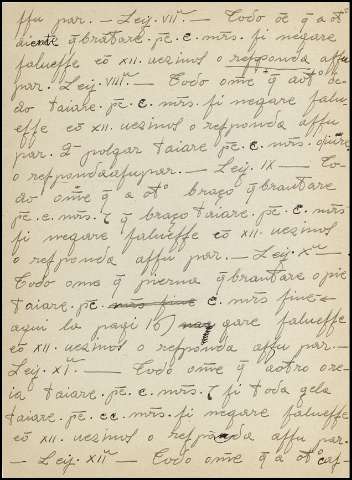 ffu par. — Leij. VII.ª — Todo oē q̄ a otº
diente q̄brātare. pē. c. mr̄s. fi negare
falueffe cō XII. uezinos o refponda affu
par. Leij. VIII.ª — Todo ome q̄ aotº de-
do taiare. pē. c. mr̄s. fi negare falu-
effe cō XII. uezinos o refponda affu
par. Q̄ polgar taiare pē. c. mr̄s.
o refpondaafupar. — Leij. IX — To-
do ome q̄ a otº braço q̄brantare
pē. c. mr̄s. ⁊ q̄ braço taiare. pē. c. mr̄s
fi negare falueffe cō XII. uezinos
o refponda affu par. — Leij. X.ª —
Todo ome q̄ pierna q̄brantare o pie
taiare. pē. mr̄s fine c. mr̄s fine
aqui la pagi 16) gare falueffe
cō XII. uezinos o refponda affu par. —
Leij. XI.ª — Todo ome q̄ aotro ore-
ia taiare. pē. c. mr̄s. ⁊ fi toda gela
taiare. pē. cc. mr̄s. fi negare falueffe
cō XII. uezinos o refponda affu par.
— Leij. XII.ª — Todo ome q̄ a otº caf-